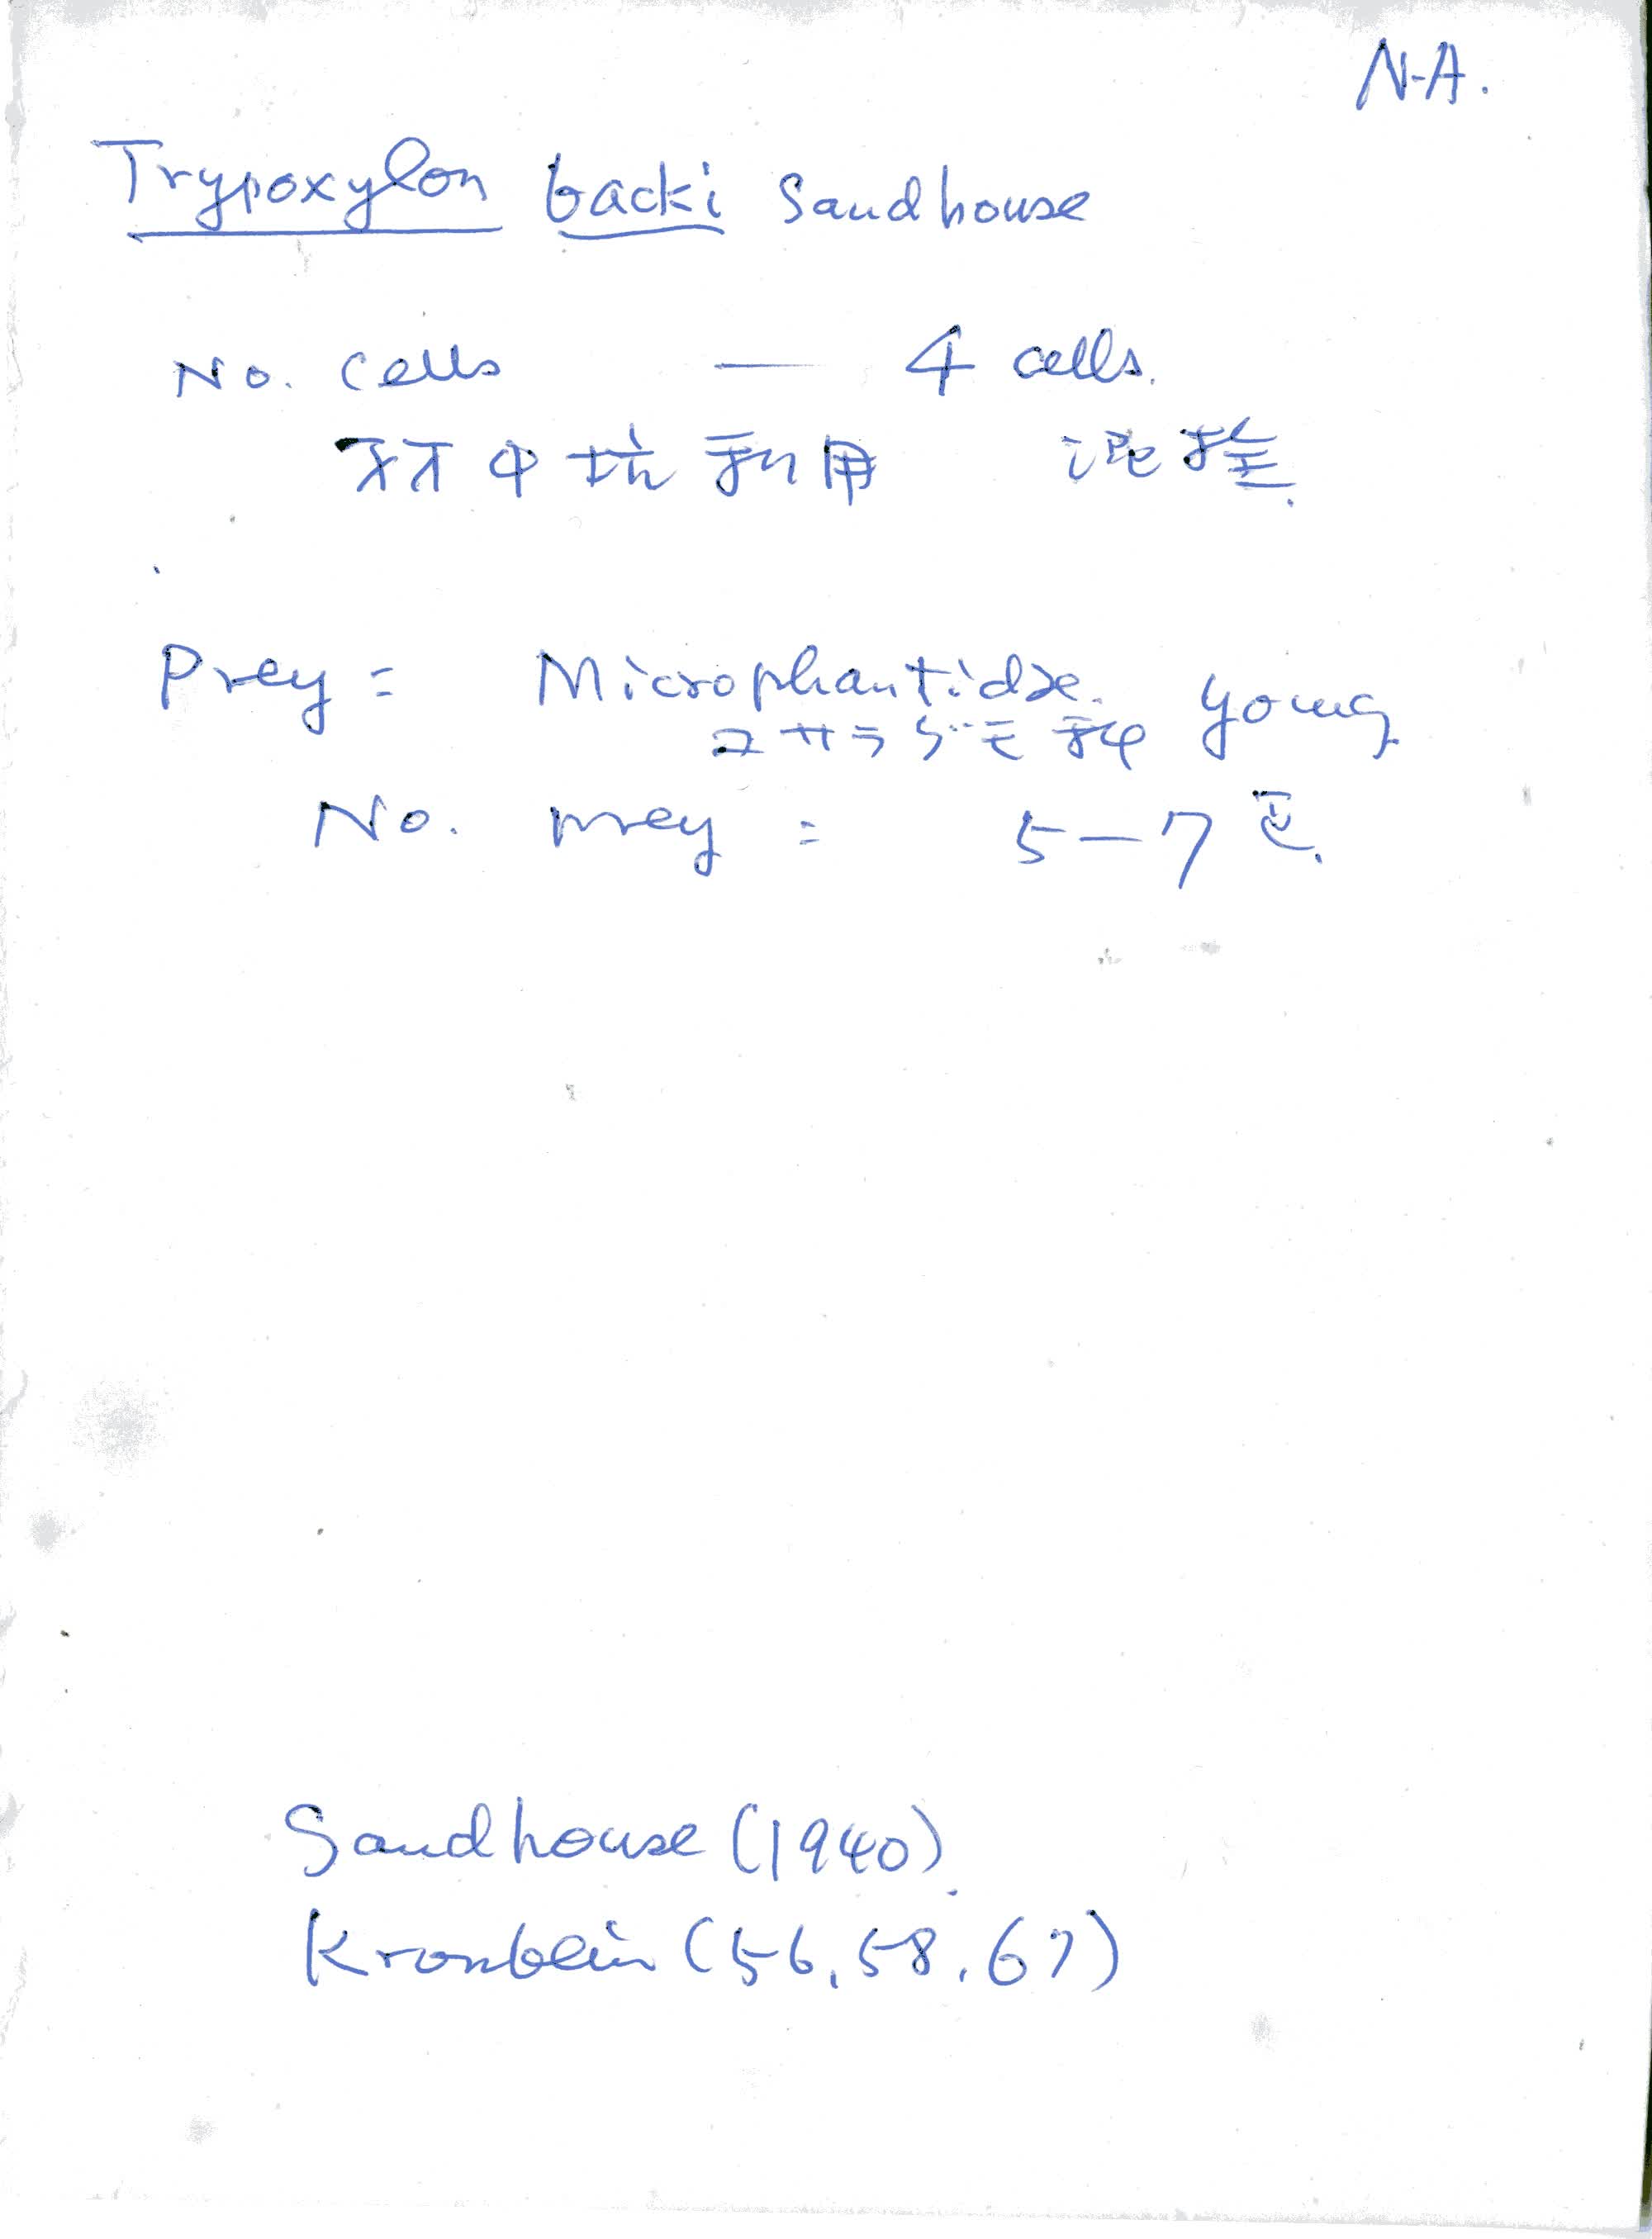 N.A.
Trypoxylon backi Sandhouse
No. cells — 4 cells.
材中坑利用 泥壁.
Prey = Microphantidae. young
コサラグモ科
No. prey = 5-7疋.
Sandhouse (1940).
Krombein (56, 58, 67)